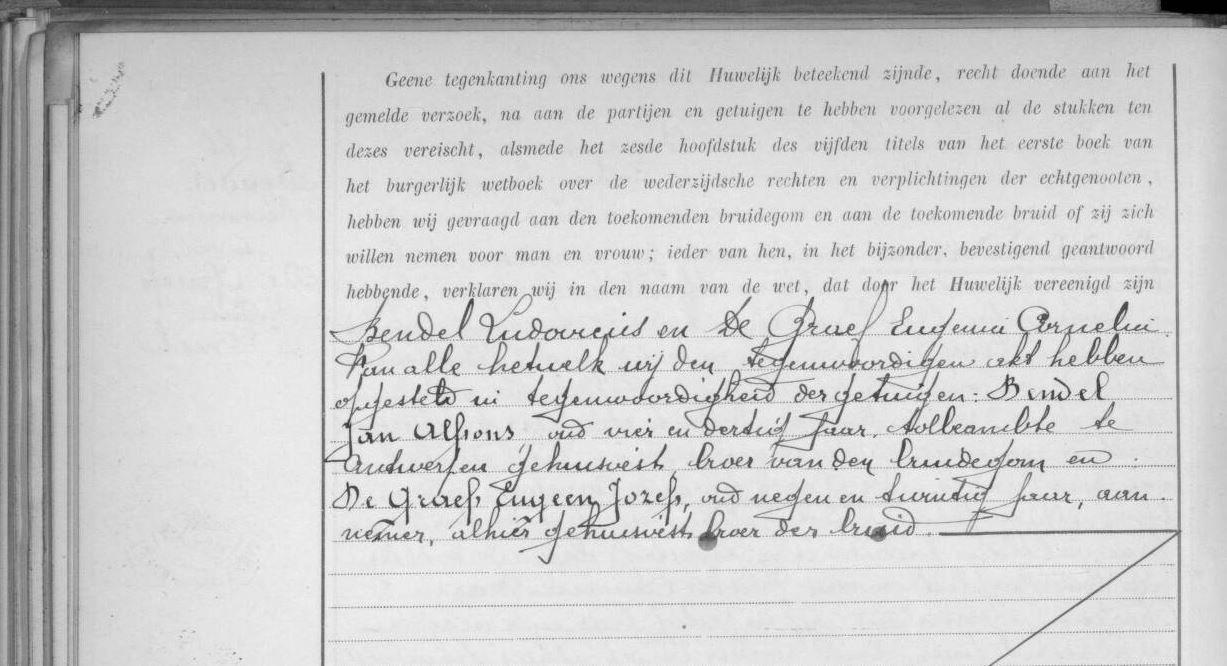 Geene tegenkanting ons wegens dit Huwelijk beteekend zijnde, recht doende aan het
gemelde verzoek, na aan de partijen en getuigen te hebben voorgelezen al de stukken ten
dezes vereischt, alsmede het zesde hoofdstuk des vijfden titels van het eerste boek van
het burgerlijk wetboek over de wederzijdsche rechten en verplichtingen der echtgenooten,
hebben wij gevraagd aan den toekomenden bruidegom en aan de toekomende bruid of zij zich
willen nemen voor man en vrouw; ieder van hen, in het bijzonder, bevestigend geantwoord
hebbende, verklaren wij in den naam van de wet, dat door het Huwelijk vereenigd zijn
Bendel Ludovicus en De Graef Eugenia Cornelia.
Van alle hetwelk wij den tegenwoordigen akt hebben
opgesteld in tegenwoordigheid der getuigen: Bendel
Jan Alfons, oud vier en dertig jaar, tolbeambte te
Antwerpen gehuisvest, broer van den bruidegom en
De Graef Eugeen Jozef, oud negen en twintig jaar, aan-
nemer, alhier gehuisvest broer der bruid.